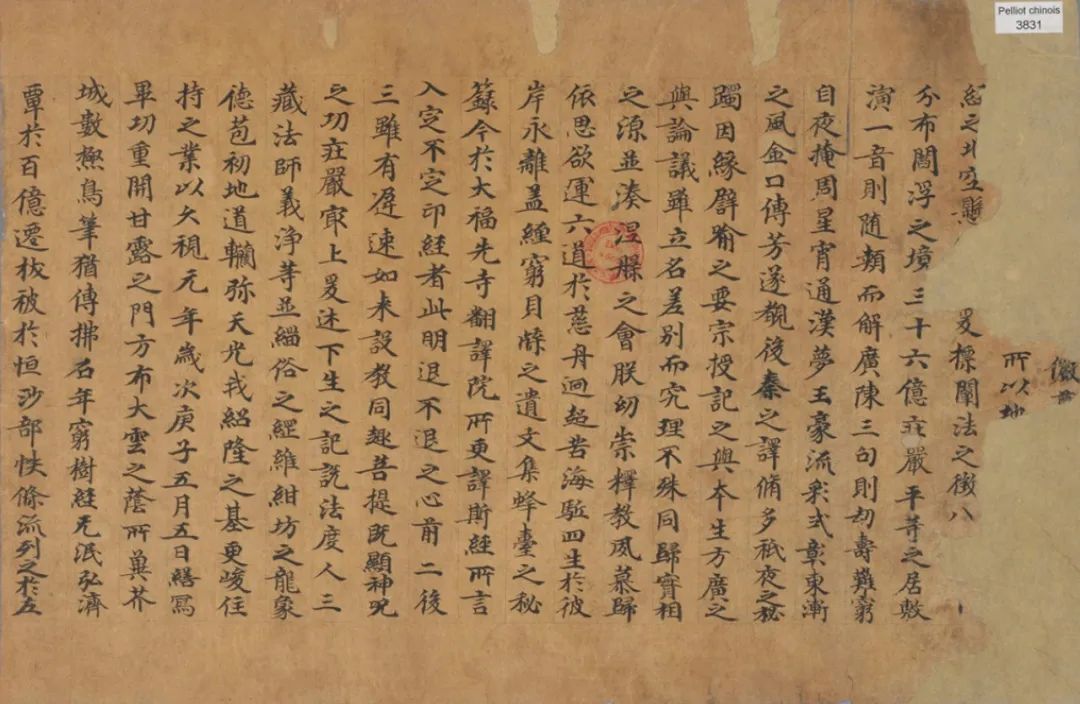 Pelliot chinois
3831
徵
所以地
紹之 空懸 爰標闡法之徵八
分布閻浮之境三十六億莊嚴平等之居敷
演一音則随類而解廣陳三句則劫壽難窮
自夜掩周星宵通漢夢玉豪流彩式彰東漸
之風金口傳芳遂覩後秦之譯脩多祇夜之秘
躅因緣譬喻之要宗授記之與本生方廣之
與論議雖立名差別而究理不殊同歸實相
之源並湊涅槃之會朕幼崇釋教夙慕歸
依思欲運六道於慈舟迥超苦海駈四生於彼
岸永離盖纏窮貝牒之遺文集蜂臺之秘
籙今於大福先寺翻譯院所更譯斯經所言
入定不定印經者此明退不退之心前二後
三雖有遅速如来設教同趣菩提既顯神呪
之功莊嚴寂上爰述下生之記説法度人三
藏法師義净等並緇俗之綱維紺坊之龍象
德苞初地道轥弥天光我紹隆之基更峻住
持之業以久視元年歲次庚子五月五日繕寫
畢功重開甘露之門方布大雲之蔭所冀芥
城數極鳥筆猶傳拂石年窮樹經无泯弘濟
覃於百億遷拔被於恒沙部帙條流列之於左